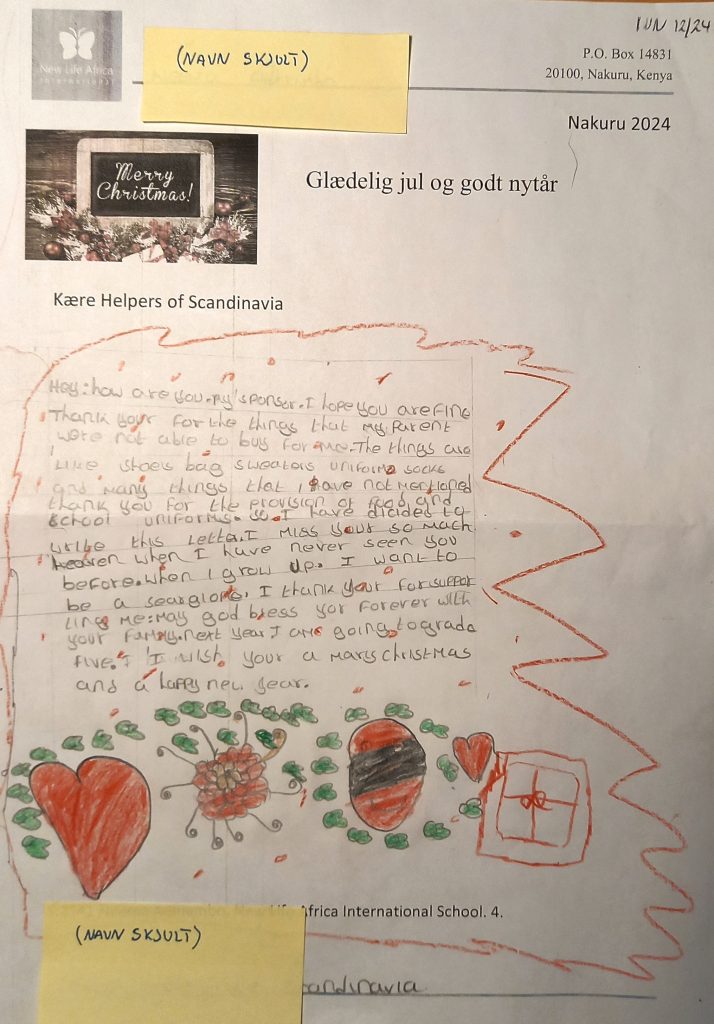 IUN 12/24
New Life Africa
International
(NAVN SKJULT)
P.O. Box 14831
20100, Nakuru, Kenya
Nakuru 2024
Merry
Christmas!
Glædelig jul og godt nytår
Kære Helpers of Scandinavia
Hey: how are you. my sponser. I hope you are Fine
Thank your For the things that my Parent
were not able to buy For me. The things are
Like shoes bag sweaters uniforms socks
and many things that I have not mentioned
thank you for the provision of Food and
School uniforms. so I have dicided to
write this letta. I miss your so mach
heaven when I have never seen you
before. when I grow up. I want to
be a seargione. I thank your For suppor
ting me: may god bless yor Forever with
your Family. next year I am going to grade
Five. I I wish your a marychristmas
and a happy new year.
Africa International School. 4.
(NAVN SKJULT)
candinavia